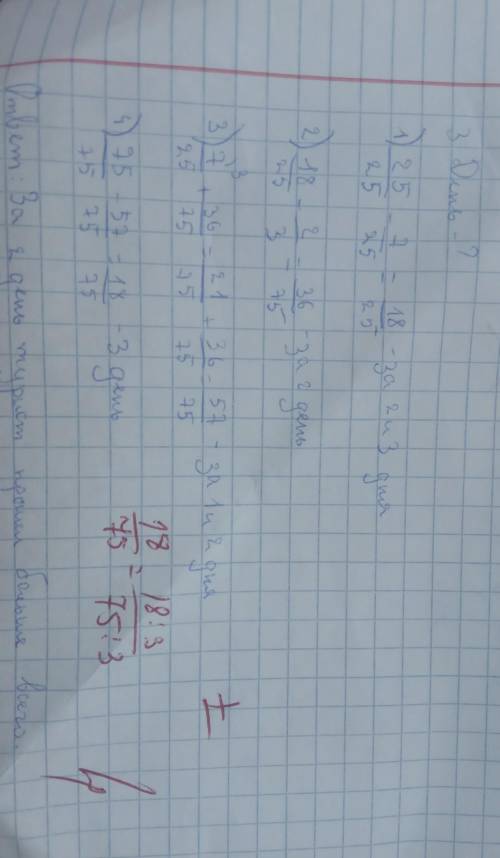 3 День - ?
1) 25/25 - 7/25 = 18/25 - за 2 и 3 дня
2) 18/25 · 2/3 = 36/75 - за 2 день
3) 7/25 ^3 + 36/75 = 21/75 + 36/75 = 57/75 - за 1 и 2 дня
±
4) 75/75 - 57/75 = 18/75 - 3 день
18/75 = 18:3/75:3
Ответ: За 2 день турист прошел больше всего.
4